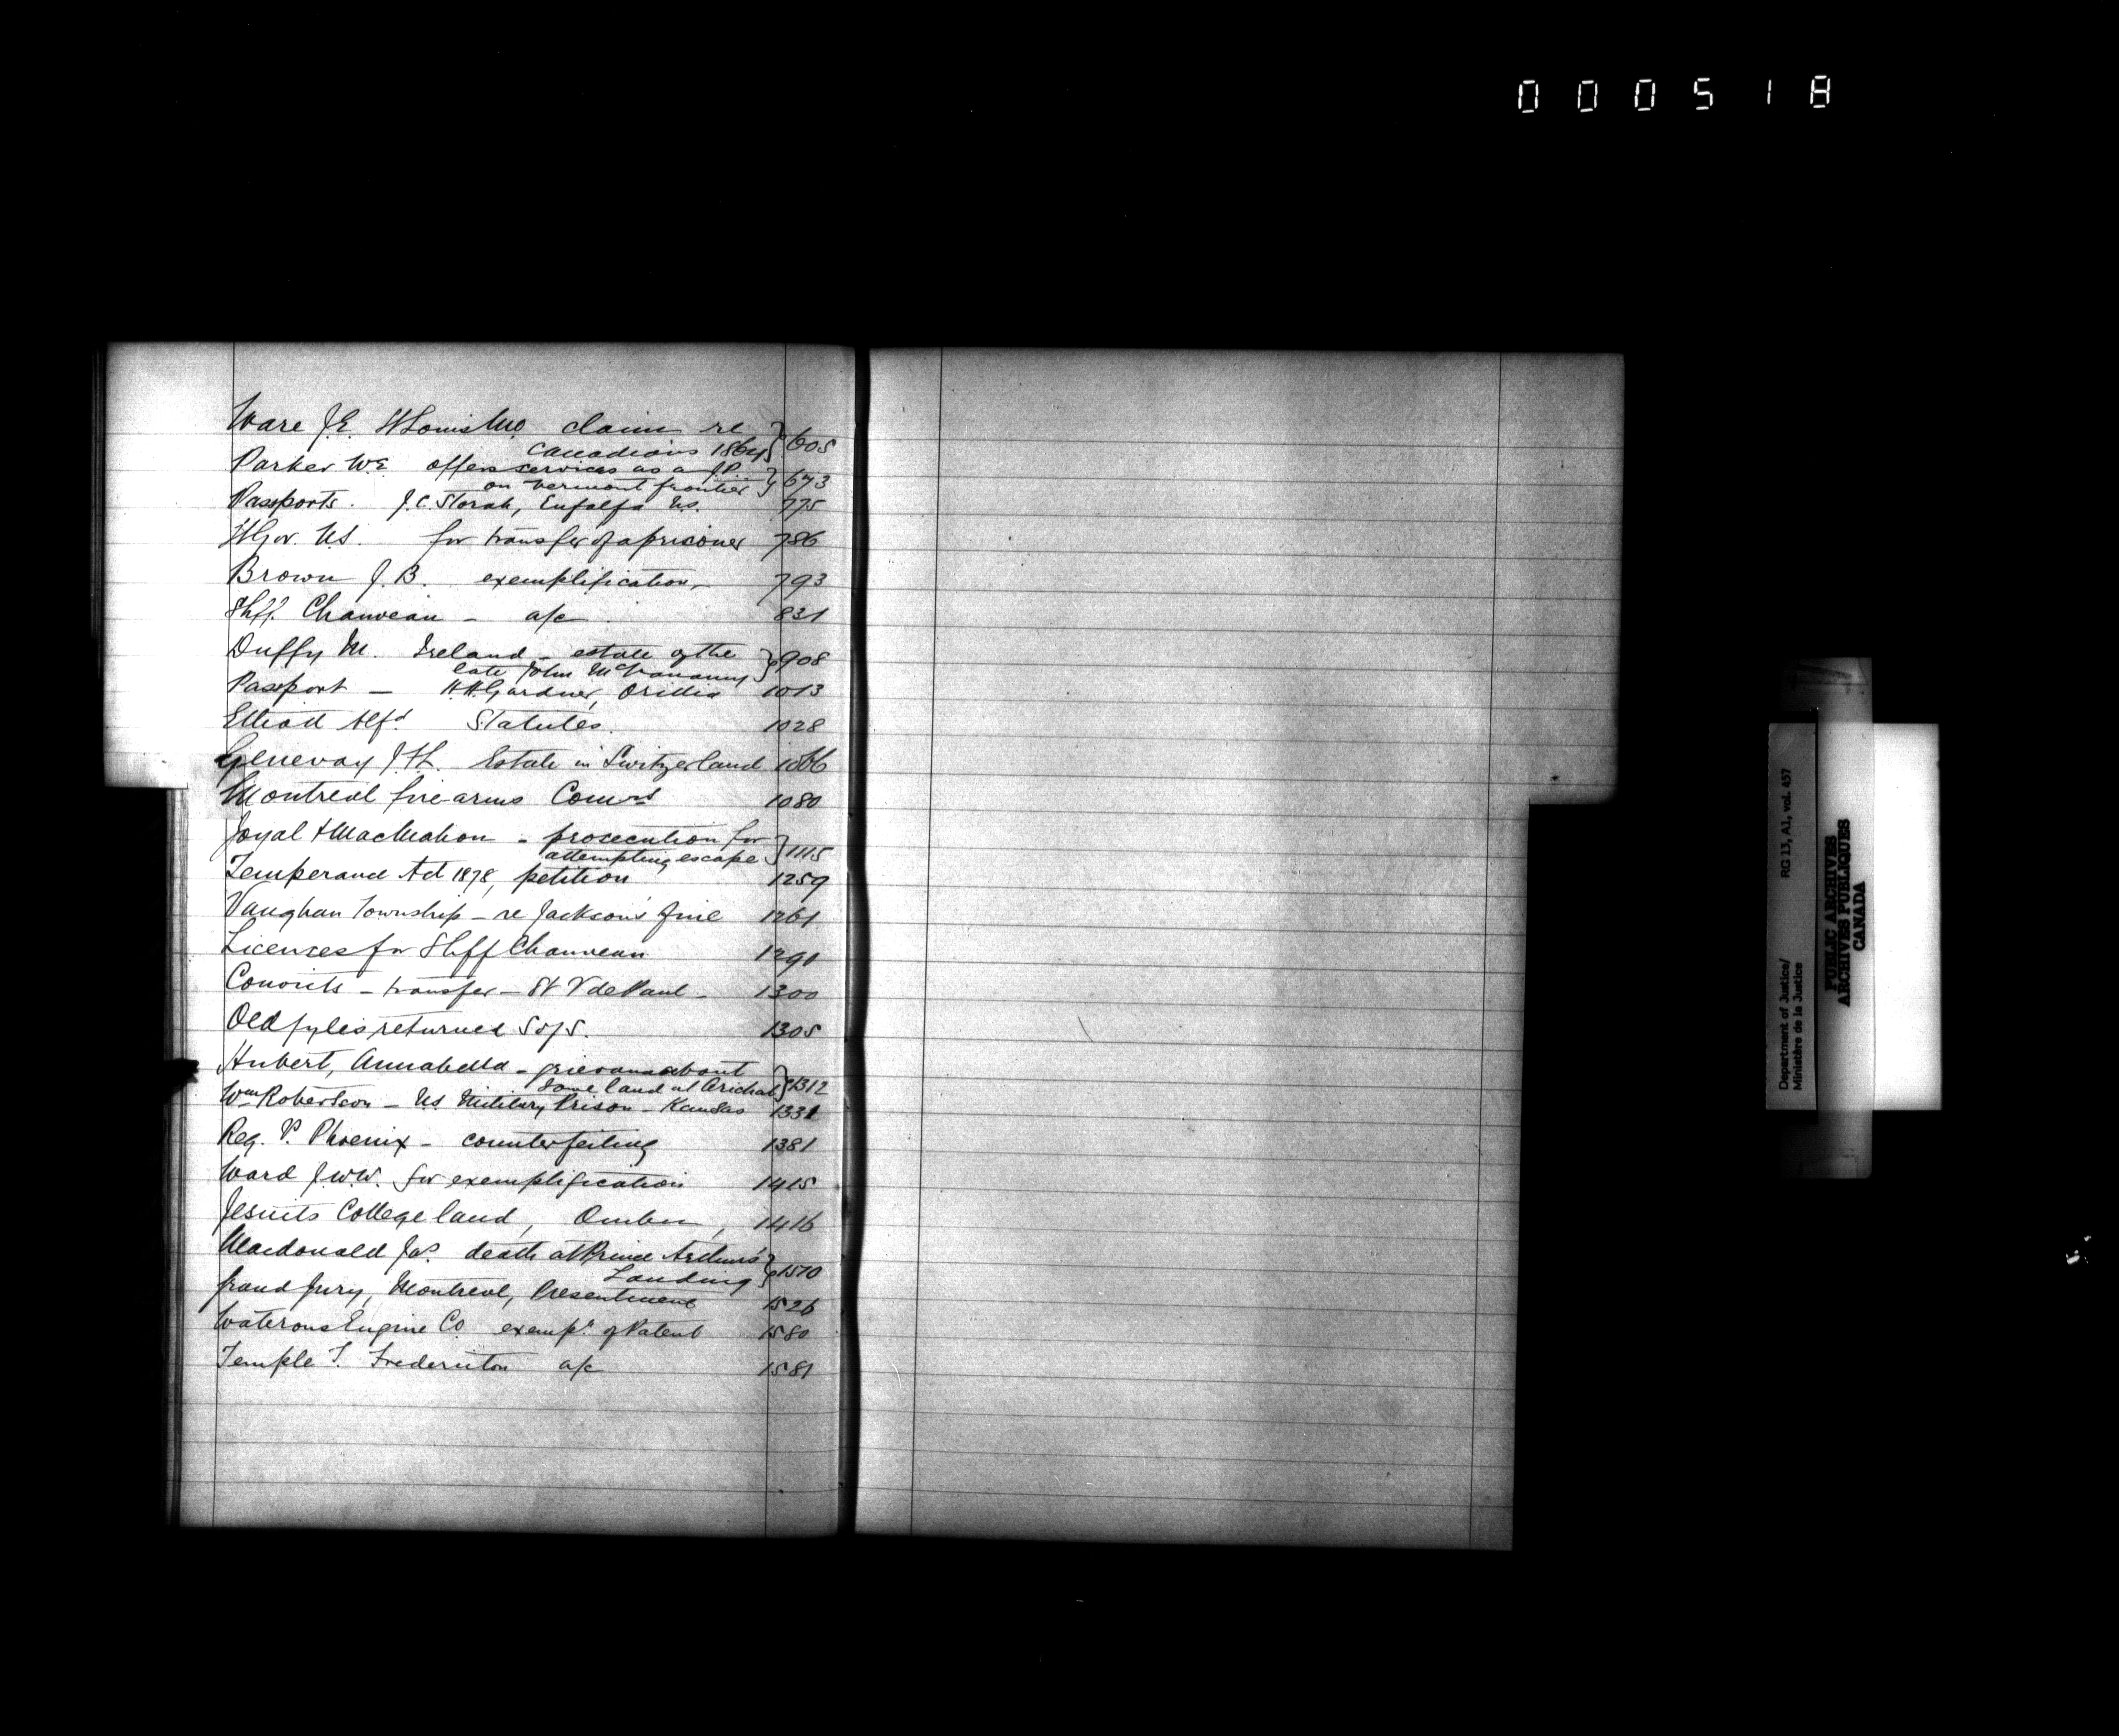 000518
Ware J.E. St Louis Mo. claim re
Canadians 1864 } 605
Parker W.E. offers services as a J.P.
on Vermont frontier } 673
Passports. J.C. Storah, Eufalfa U.S. 775
Lt Gov. N.S. for transfer of a prisoner 786
Brown J.B. exemplification 793
Shff. Chauveau - a/c 831
Duffy M. Ireland - estate of the
late John } 908
Passport - H.H. Gardner, Orillia 1013
Elliott Alfd Statutes. 1028
Genevay J.H. Estate in Switzerland 1066
Montreal fire arms Comrs 1080
Joyal & MacMahon - prosecution for
attempting escape } 1115
Temperance Act 1878, petition 1259
Vaughan Township - re Jackson's fine 1261
Licenses for Shff Chauveau 1290
Convicts - transfer - St V de Paul - 1300
Old fyles returned S of S. 1305
Hubert, Annabella - grievance about
some land at Arichat } 1312
Wm Robertson - U.S. Military Prison - Kansas 1331
Reg. v. Phoenix - counterfeiting 1381
Ward J.W.W. for exemplification 1415
Jesuits College land, Quebec, 1416
Macdonald Jas. death at Prince Arthur's
Landing } 1510
Grand Jury, Montreal, Presentment 1526
Waterous Engine Co. exempn. of Patent 1580
Temple T. Fredericton a/c 1581
Department of Justice/ RG 13, A1, vol. 457
Ministère de la Justice
PUBLIC ARCHIVES
ARCHIVES PUBLIQUES
CANADA